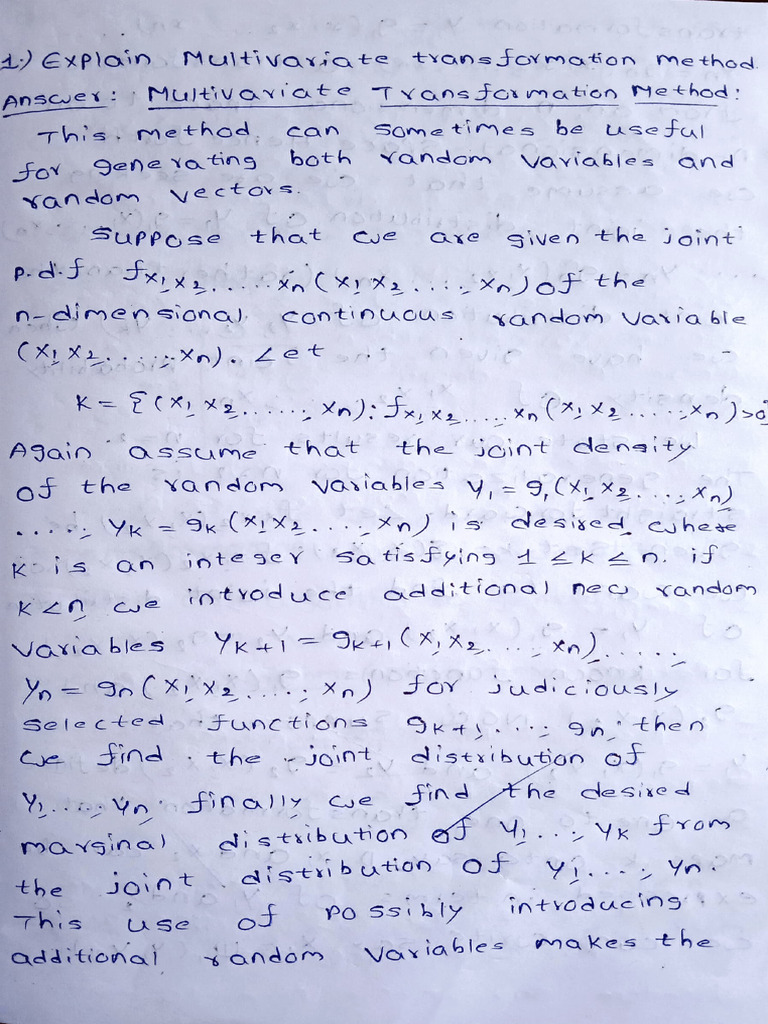 1.) Explain Multivariate transformation method.
Answer: Multivariate Transformation Method:
This method can sometimes be useful
for generating both random variables and
random vectors.
Suppose that we are given the joint
p.d.f fx1,x2.....xn (x1,x2....,xn) of the
n-dimensional continuous random variable
(x1,x2.....,xn). Let
K = {(x1,x2......,xn): fx1,x2.....xn (x1,x2.....,xn)>0
Again assume that the joint density
of the random variables y1 = g1(x1,x2....,xn)
....., yk = gk (x1,x2....,xn) is desired, where
k is an integer satisfying 1 ≤ k ≤ n. if
k<n we introduce additional new random
variables yk+1 = gk+1 (x1,x2....,xn).....,
yn = gn (x1,x2.....,xn) for judiciously
selected functions gk+1,...., gn, then
we find the joint distribution of
y1....,yn. finally we find the desired
marginal distribution of y1...., yk from
the joint distribution of y1....., yn.
This use of possibly introducing
additional random variables makes the